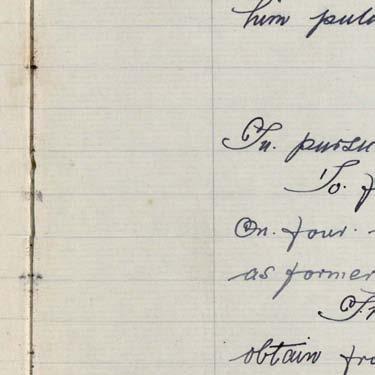 him
In. pursu
To. f
On. four.
as former
obtain fro